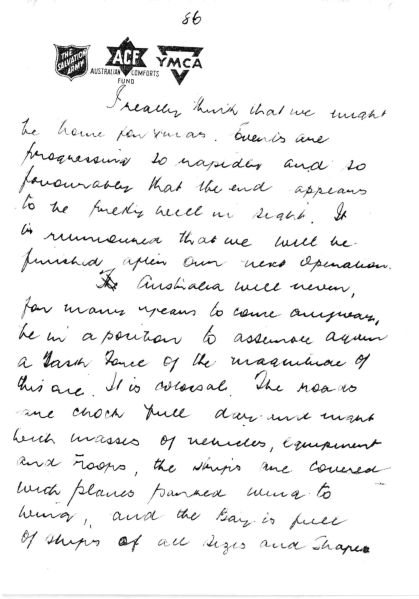 86
THE SALVATION ARMY
ACF
AUSTRALIAN COMFORTS FUND
YMCA
I really think that we might
be home for xmas. Events are
progressing so rapidly and so
favourably that the end appears
to be pretty well in sight. It
is rumoured that we will be
finished after our next operation.
Australia will never,
for many years to come anyway,
be in a position to assemble again
a Task Force of the magnitude of
this one. It is colossal. The roads
are chock full day and night
with masses of vehicles, equipment
and troops, the strips are covered
with planes parked wing to
wing, and the Bay is full
of ships of all sizes and shapes